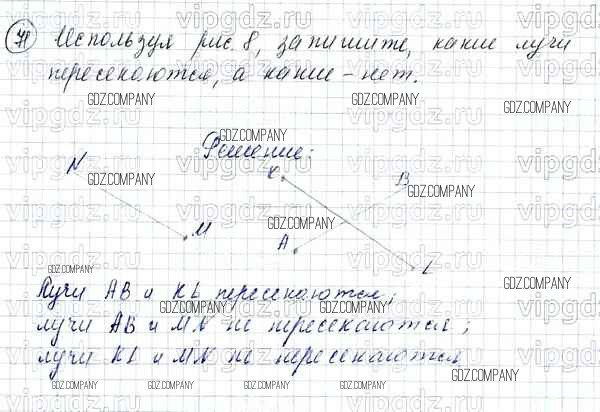 71 Используя рис. 8, запишите, какие лучи
пересекаются, а какие – нет.
Решение:
N K B
M A L
Лучи AB и KL пересекаются;
лучи AB и MN не пересекаются;
лучи KL и MN не пересекаются
vipgdz.com
GDZ.COMPANY